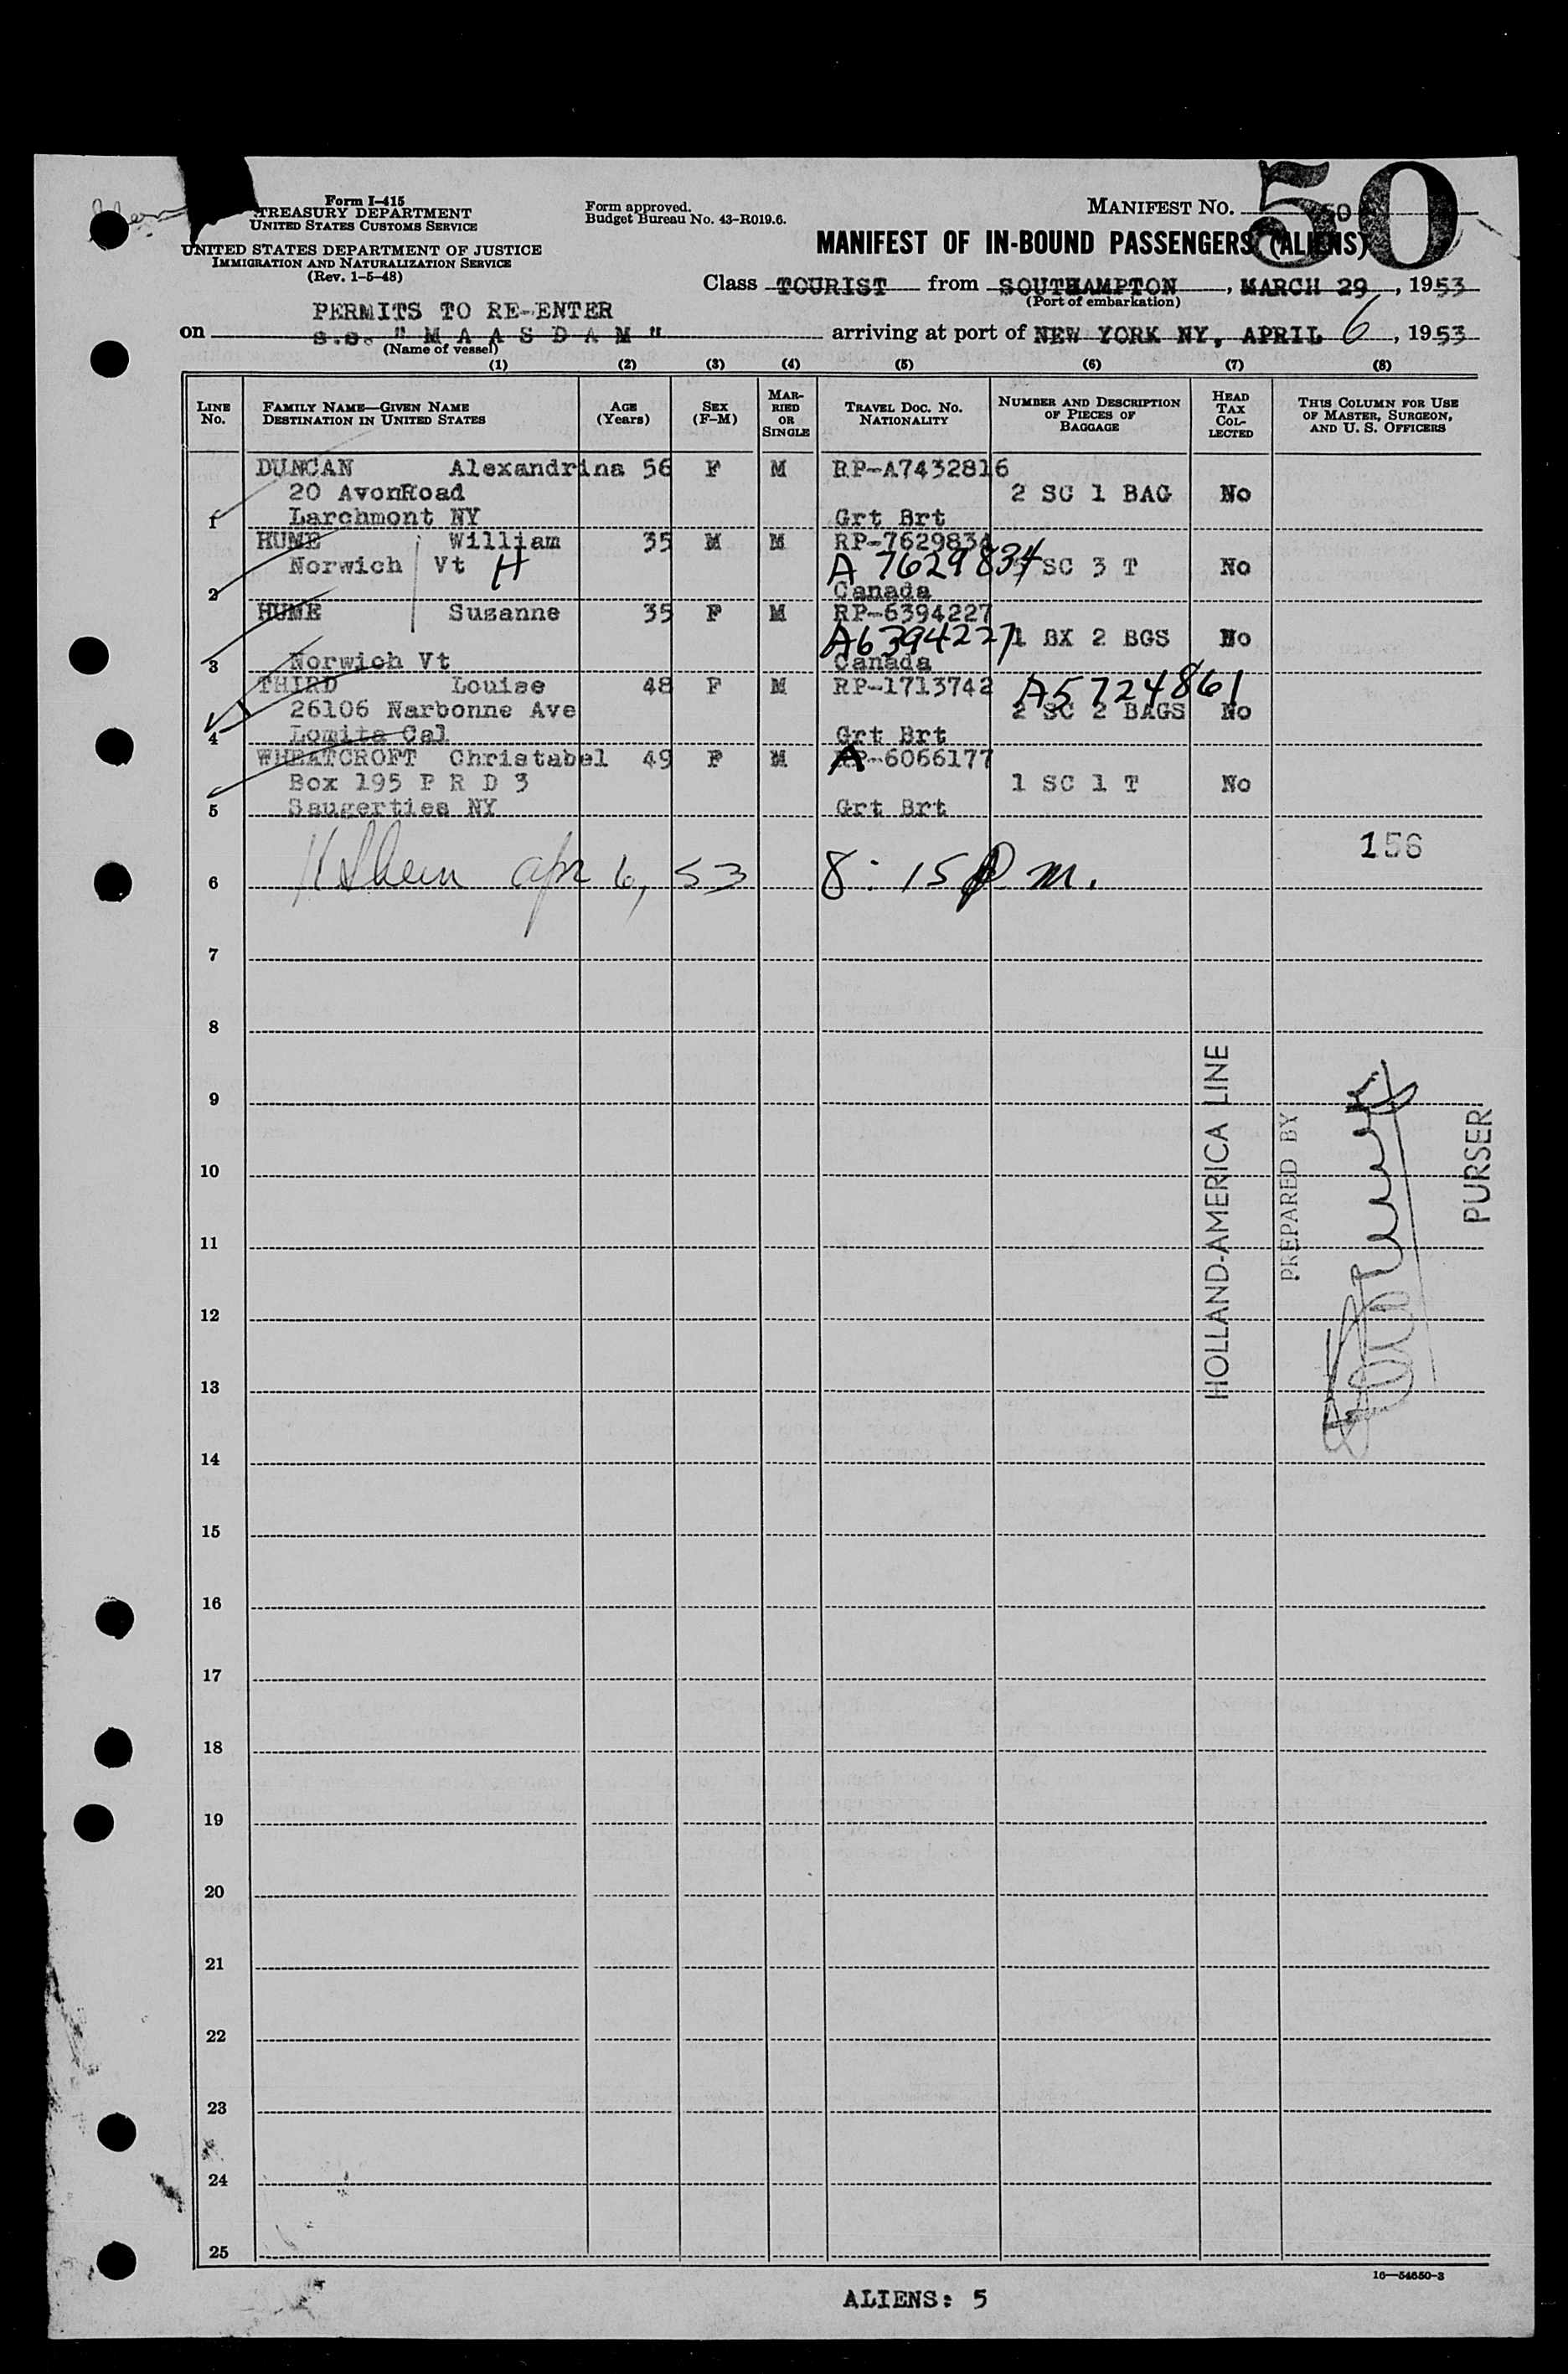 Form I-415
TREASURY DEPARTMENT
UNITED STATES CUSTOMS SERVICE
UNITED STATES DEPARTMENT OF JUSTICE
IMMIGRATION AND NATURALIZATION SERVICE
(Rev. 1-5-48)
Form approved.
Budget Bureau No. 43-R019.6.
MANIFEST NO. 50
50
MANIFEST OF IN-BOUND PASSENGERS (ALIENS)
Class TOURIST from SOUTHAMPTON, MARCH 29, 1953
(Port of embarkation)
PERMITS TO RE-ENTER
on s.s. "M A A S D A M" arriving at port of NEW YORK NY, APRIL 6, 1953
(Name of vessel)
(1) (2) (3) (4) (5) (6) (7) (8)
LINE NO. FAMILY NAME—GIVEN NAME DESTINATION IN UNITED STATES AGE (Years) SEX (F-M) MARRIED OR SINGLE TRAVEL DOC. NO. NATIONALITY NUMBER AND DESCRIPTION OF PIECES OF BAGGAGE HEAD TAX COLLECTED THIS COLUMN FOR USE OF MASTER, SURGEON, AND U. S. OFFICERS
DUNCAN Alexandrina 56 F M RP-A7432816
20 AvonRoad 2 SC 1 BAG No
1 Larchmont NY Grt Brt
HUME William 35 M M RP-7629834
Norwich Vt H A 7629834 SC 3 T No
2 Canada
HUME Suzanne 35 F M RP-6394227
A6394227 1 BX 2 BGS No
3 Norwich Vt Canada
THIRD Louise 48 F M RP-1713742 A5724861
26106 Narbonne Ave 2 SC 2 BAGS No
4 Lomita Cal Grt Brt
WHEATCROFT Christabel 49 F M A -6066177
Box 195 P R D 3 1 SC 1 T No
5 Saugerties NY Grt Brt
156
6 apr 6, 53 8:15 P m.
7
8
9
10
11
12
13
14
15
16
17
18
19
20
21
22
23
24
25
HOLLAND-AMERICA LINE
PREPARED BY
PURSER
16—54650-3
ALIENS: 5